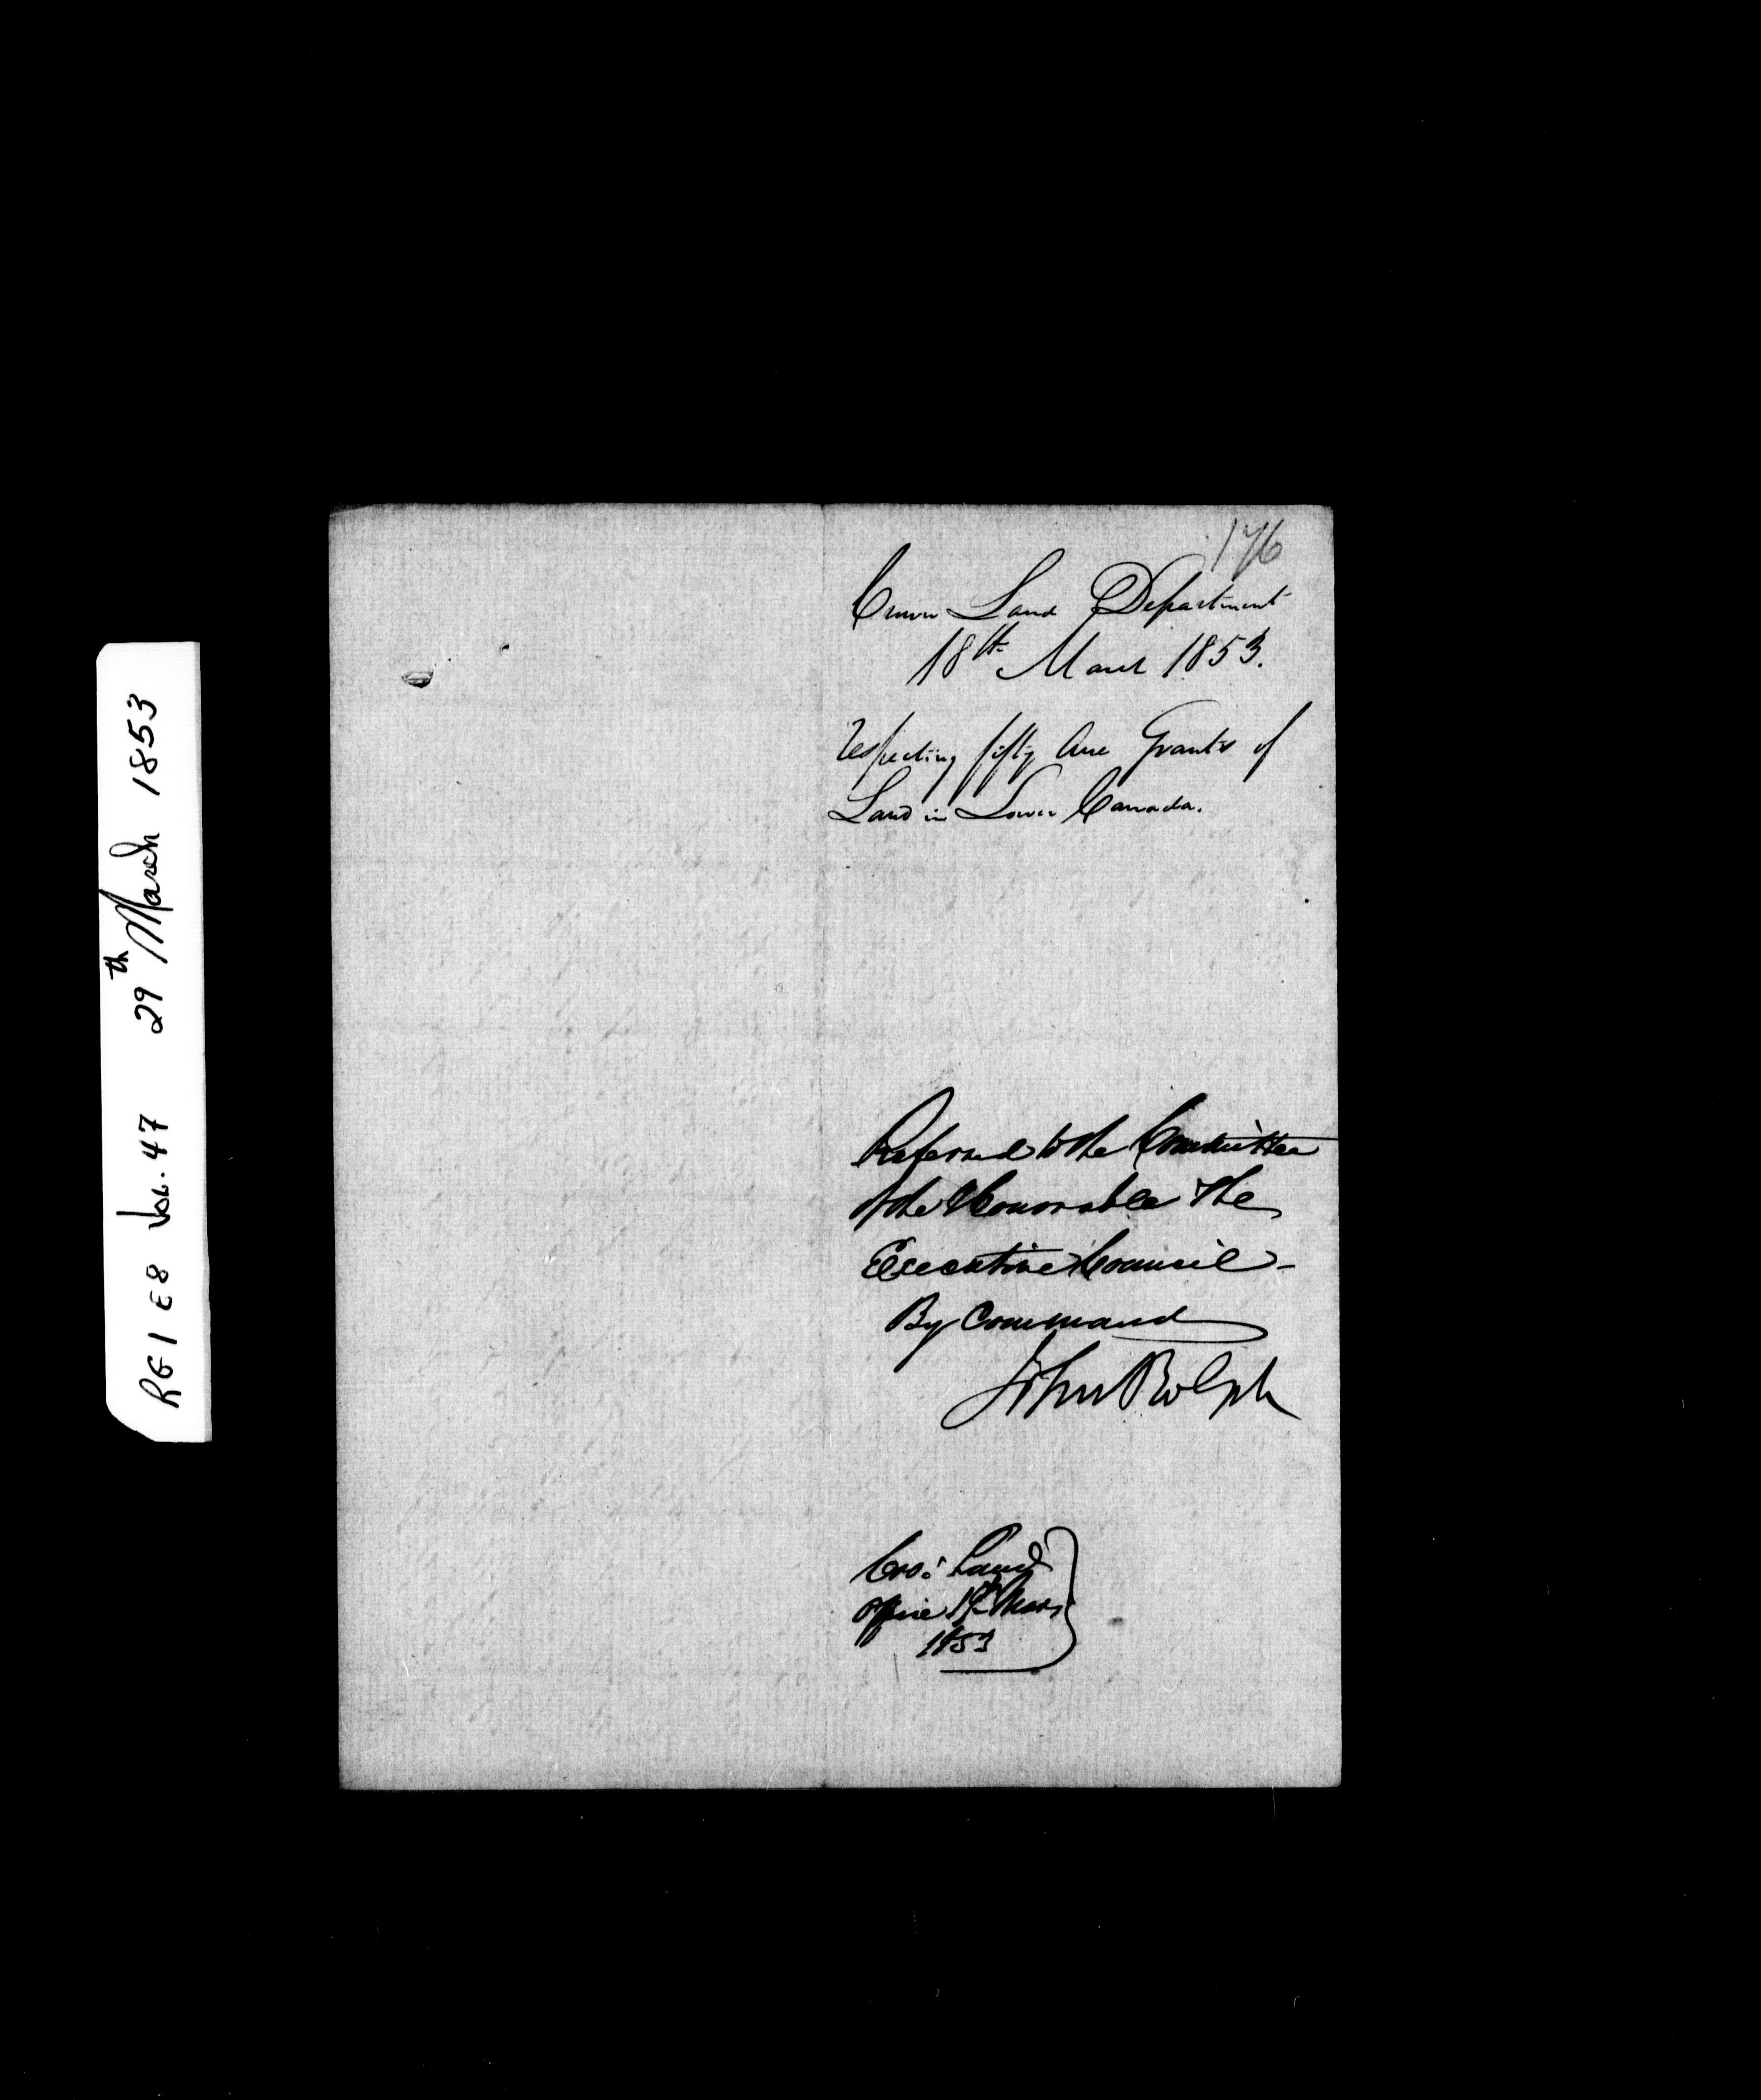 RG 1 E8 Vol. 47 29th March 1853
176
Crown Land Department
18th March 1853.
Respecting fifty Acre Grants of
Land in Lower Canada.
Referred to the Committee
of the Honorable The
Executive Council -
By Command
John Rolph
Cro: Land
Office Mar:
1853